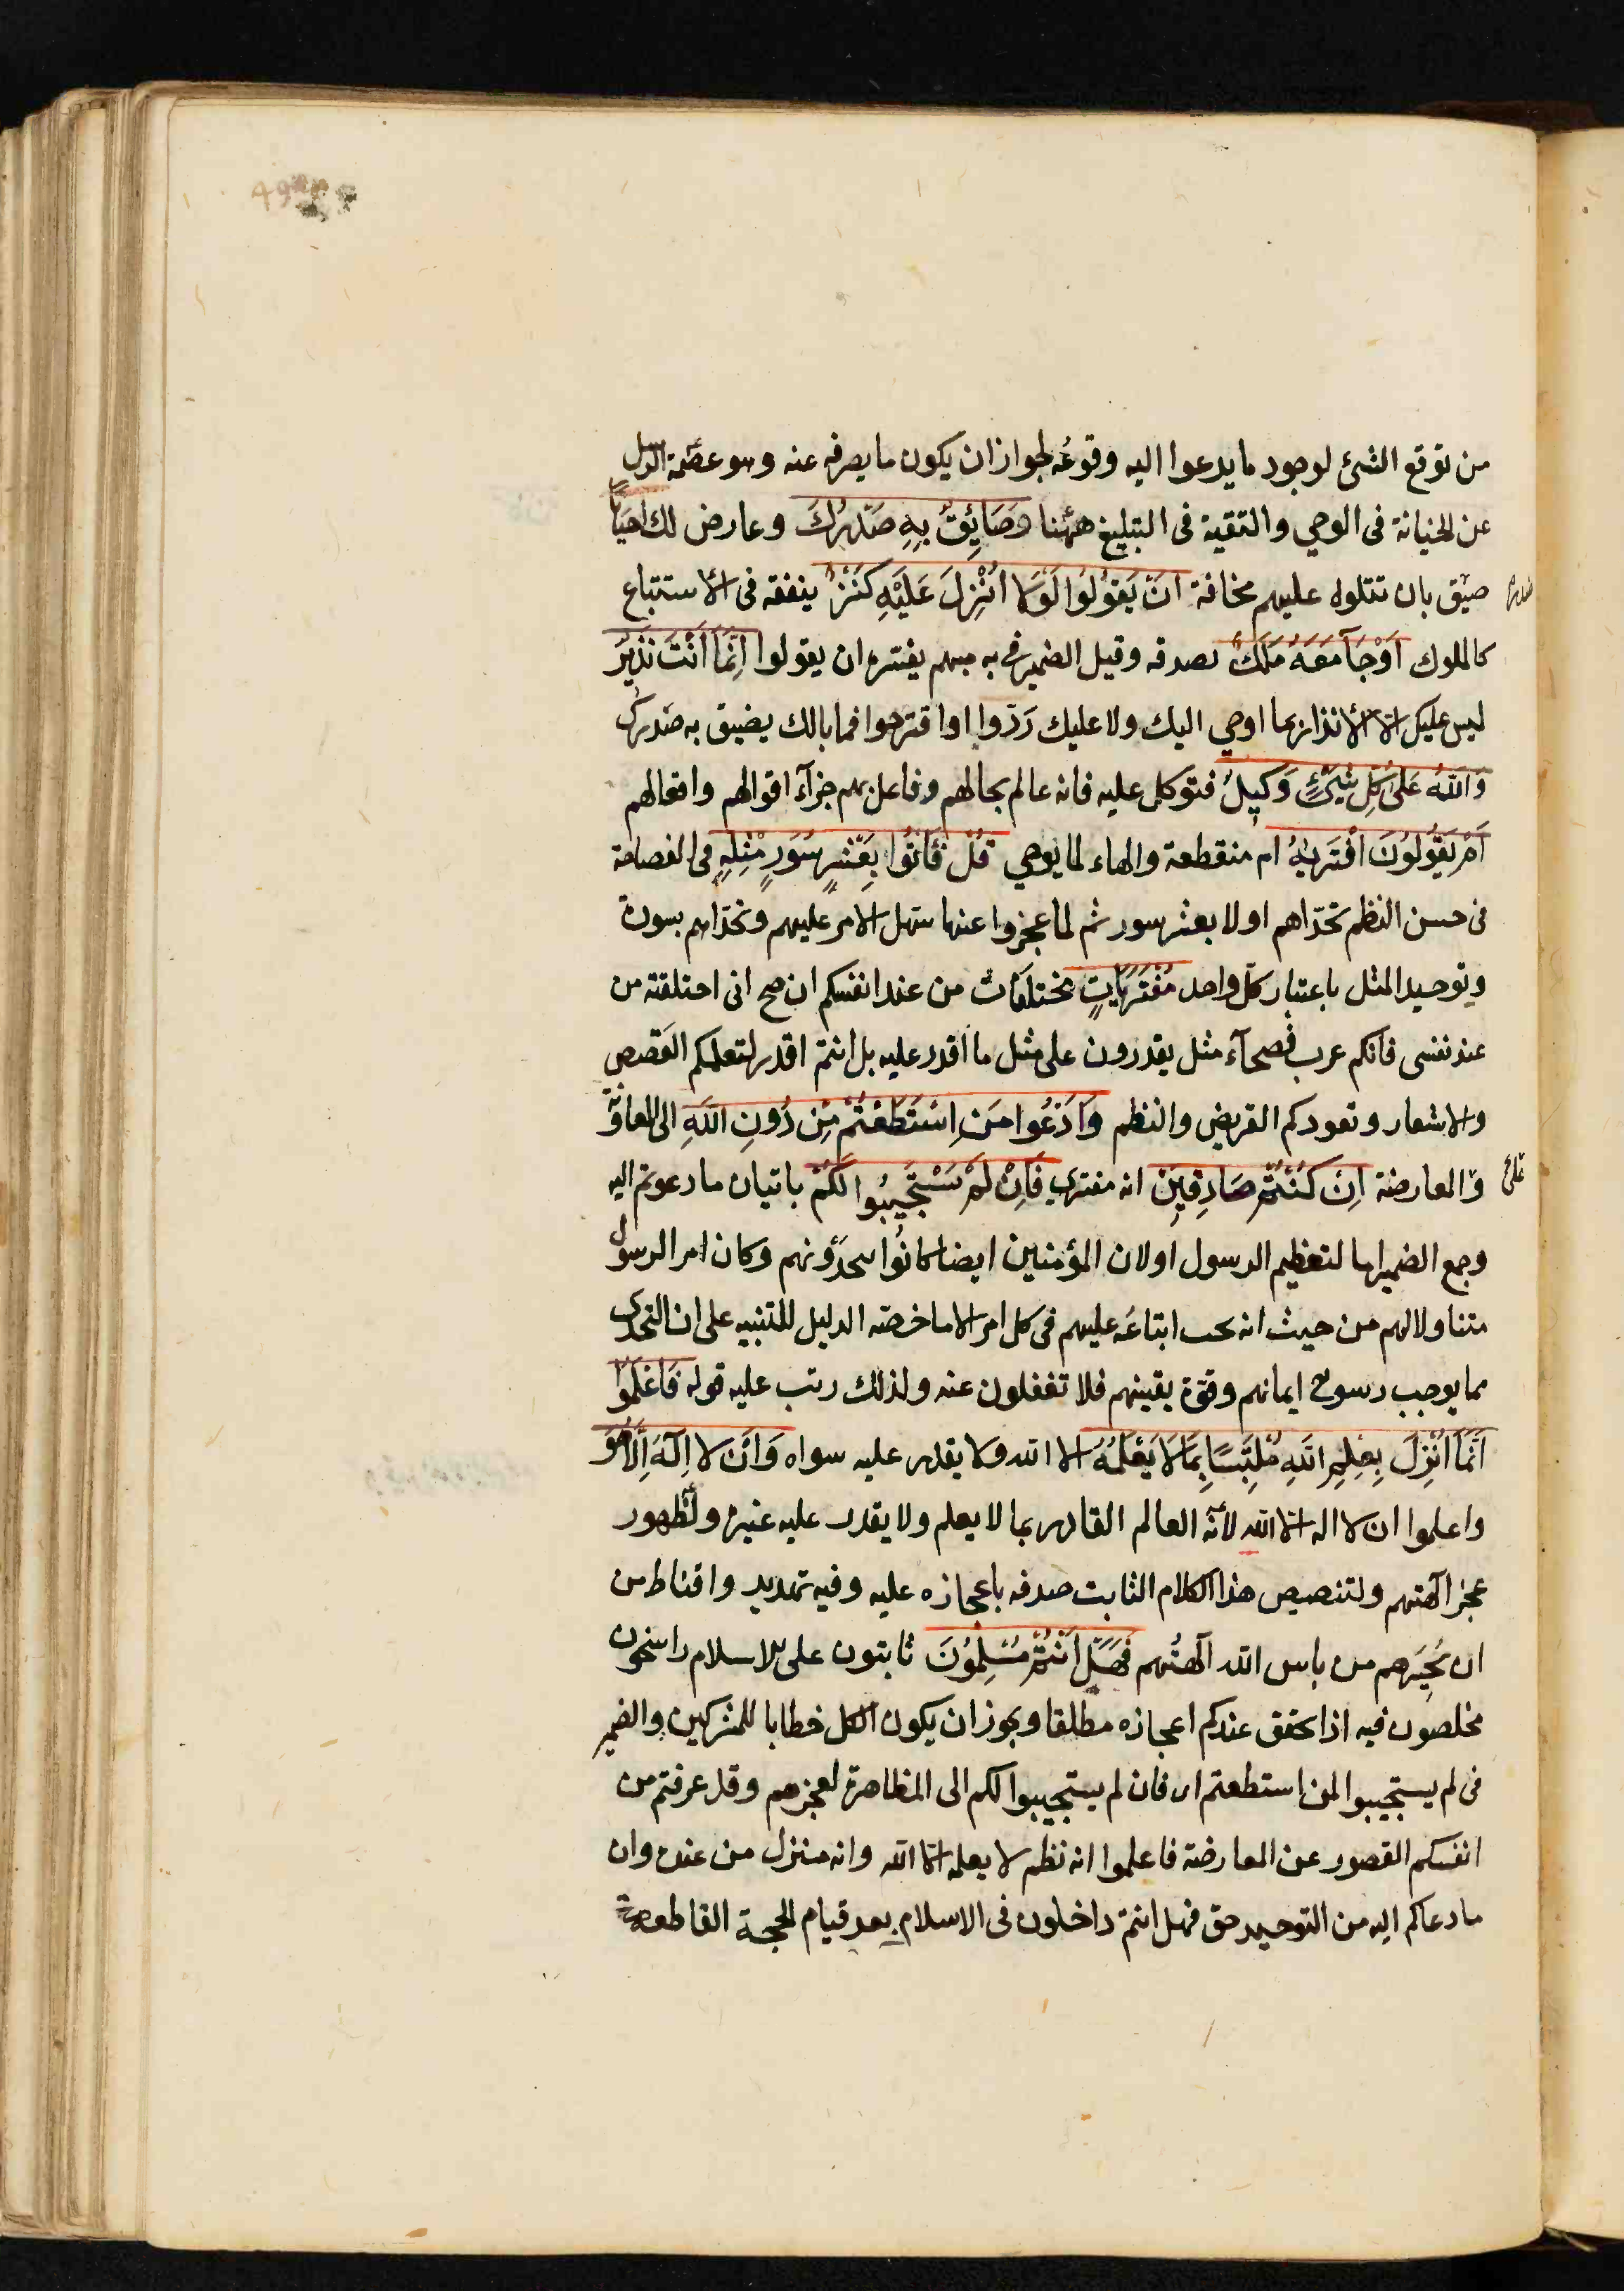 من توقع الشئ لوجود ما يدعوا اليه وقوعُه لجواز ان يكون ما يصرفه عنه وهو عصمة الرسل
عن الخيانة فى الوحي والتقية فى التبليغ ههُنا وَضَائِقٌ بِهِ صَدْرُكَ وعارض لك احيانًا
ضيق بان تتلوه عليهم مخافة اَنْ يَقُولُوا لَوْلَا اُنْزِلَ عَلَيْهِ كَنْزٌ ينفقه فى الاستتباع
صدرك
كالملوك اَوْ جَآءَ مَعَهُ مَلَكٌ يصدقه وقيل الضمير فى به مبهم يفسره ان يقولوا اِنَّمَا اَنْتَ نَذِيرٌ
ليس عليك الا الانذار بما اوحي اليك ولا عليك رَدّوا او اقترحوا فما بالك يضيق به صَدرك
وَاللهُ عَلٰى كُلِّ شَيْءٍ وَكِيلٌ فتوكل عليه فانه عالم بحالهم وفاعل بهم جزآء اقوالهم وافعالهم
اَمْ يَقُولُونَ افْتَرٰيهُ ام منقطعة والهاء لما يوحي قُلْ فَأْتُوا بِعَشْرِ سُوَرٍ مِثْلِهِ فى الفصاحة
فى حسن النظم تحدّاهم اولا بعشر سور ثم لما عجزوا عنها سهل الامر عليهم وتحدّاهم بسورة
وتوحيد المثل باعتبار كلّ واحد مُفْتَرَيَاتٍ مختلقات من عند انفسكم ان صح انى اختلقته من
عند نفسى فانكم عرب فصحآء مثل يقدرون على مثل ما اقدر عليه بل انتم اقدر لتعلمكم القصص
والاشعار وتعودكم القريض والنظم وَادْعُوا مَنِ اسْتَطَعْتُمْ مِنْ دُونِ اللهِ الى المعاونة
على
والمعارضة اِنْ كُنْتُمْ صَادِقِينَ انه مفترى فَاِنْ لَمْ يَسْتَجِيبُوا لَكُمْ باتيان ما دعوتم اليه
وجمع الضمير اما لتعظيم الرسول او لان المؤمنين ايضا كانُوا يتحدَّونهم وكان امر الرسول
متناولا لهم من حيث انه يجب اتباعَه عليهم فى كل امر الا ما خصّه الدليل للتنبيه على ان التحدى
مما يوجب رسوخ ايمانهم وقوّة يقينهم فلا تغفلون عنه ولذلك رتب عليه قوله فَاعْلَمُوا
اَنَّمَا اُنْزِلَ بِعِلْمِ اللهِ مُلْتَبِسًا بِمَا لَا يَعْلَمُهُ الا الله ولا يقدر عليه سواه وَاَنْ لا اِلٰهَ اِلَّا هُوَ
واعلموا ان لا اله الا الله لانّه العالم القادر بما لا يعلم ولا يقدر عليه غيره ولظهور
عجز آلهتهم ولتنصيص هذا الكلام الثابت صدقه باعجازه عليه وفيه تهديد واقناط من
ان يُجِيَرهم من باس الله آلهتُهم فَهَلْ اَنْتُمْ مُسْلِمُونَ ثابتون على الاسلام راسخون
مخلصون فيه اذا تحقق عندكم اعجازه مطلقا ويجوز ان يكون الكل خطابا للمشركين والضمير
فى لم يستجيبوا لمن استطعتم اى فان لم يستجيبوا لكم الى المظاهرة لعجزهم وقد عرفتم من
انفسكم القصور عن المعارضة فاعلموا انه نظم لا يعلمه الا الله وانه منزل من عنده وان
ما دعاكم اليه من التوحيد حق فهل انتم داخلون فى الاسلام بعد قيام الحجة القاطعة